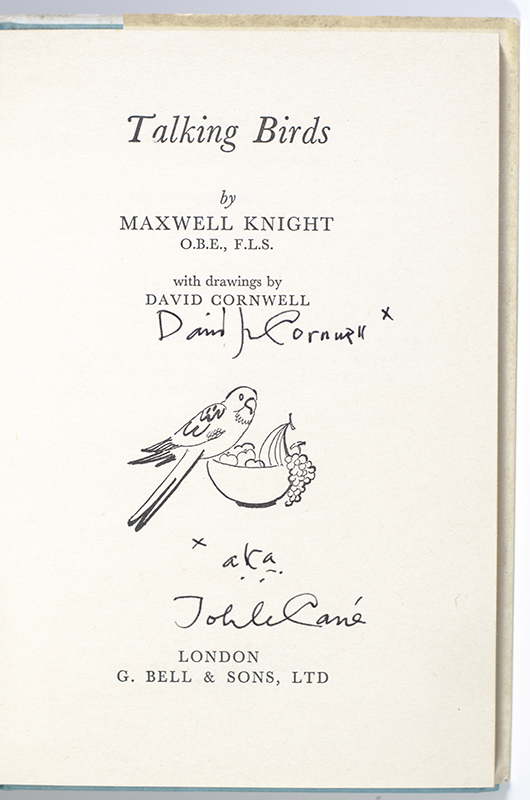 Talking Birds
by
MAXWELL KNIGHT
O.B.E., F.L.S.
with drawings by
DAVID CORNWELL
David Jn Cornwell x
x aka
John le Carré
LONDON
G. BELL & SONS, LTD